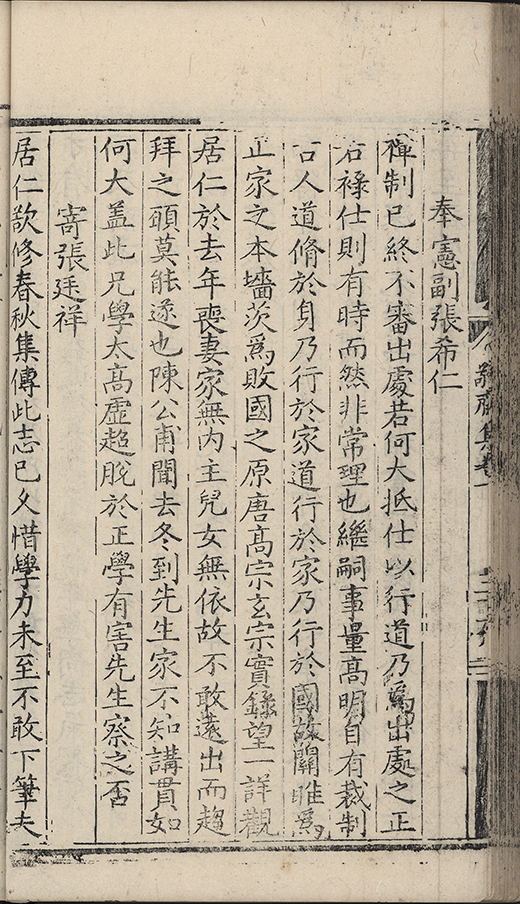 奉憲副張希仁
禫制已終不審出處若何大抵仕以行道乃爲出處之正
若祿仕則有時而然非常理也繼嗣事量高明自有裁制
古人道脩於身乃行於家道行於家乃行於國故關雎爲
正家之本墻茨爲敗國之原唐高宗玄宗實錄望一詳觀
居仁於去年喪妻家無内主兒女無依故不敢遠出而趨
拜之頭莫能遂也陳公甫聞去冬到先生家不知講貫如
何大盖此兄學太高虚超脫於正學有害先生察之否
寄張廷祥
居仁欲修春秋集傳此志已久惜學力未至不敢下筆夫
敬齋集卷一